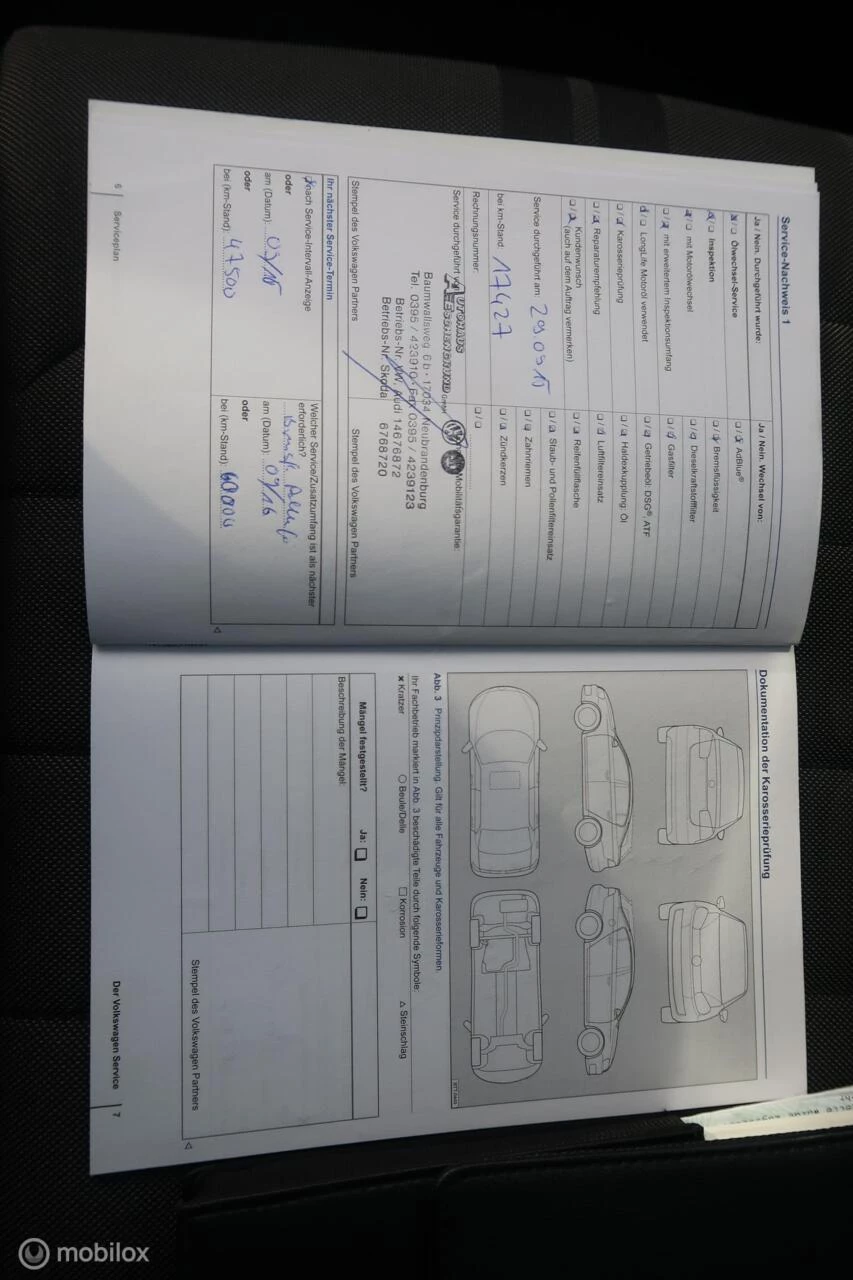 Service-Nachweis 1
Ja / Nein. Durchgeführt wurde:
Ölwechsel-Service
Inspektion
mit Motorölwechsel
mit erweitertem Inspektionsumfang
LongLife Motoröl verwendet
Karosserieprüfung
Reparaturempfehlung
Kundenwunsch
(auch auf dem Auftrag vermerken)
Service durchgeführt am: 29.09.15
bei km-Stand: 17427
Rechnungsnummer:
Service durchgeführt von:
Ja / Nein. Wechsel von:
AdBlue®
Bremsflüssigkeit
Dieselkraftstofffilter
Gasfilter
Getriebeöl: DSG®, ATF
Haldexkupplung: Öl
Luftfiltereinsatz
Reifenfüllflasche
Staub- und Pollenfiltereinsatz
Zahnriemen
Zündkerzen
Mobilitätsgarantie:
AUTOHAUS
ESCHENGRUND GmbH
Baumwallsweg 6 b · 17034 Neubrandenburg
Tel. 0395 / 423910 · Fax 0395 / 4239123
Betriebs-Nr. VW, Audi 14676872
Betriebs-Nr. Skoda 6768720
Stempel des Volkswagen Partners
Stempel des Volkswagen Partners
Ihr nächster Service-Termin
nach Service-Intervall-Anzeige
oder
am (Datum):
oder
bei (km-Stand): 47500
Welcher Service/Zusatzumfang ist als nächster
erforderlich?
am (Datum): 09/16
oder
bei (km-Stand): 60000
6 Serviceplan
Dokumentation der Karosserieprüfung
Abb. 3 Prinzipdarstellung. Gilt für alle Fahrzeuge und Karosserieformen.
Ihr Fachbetrieb markiert in Abb. 3 beschädigte Teile durch folgende Symbole:
× Kratzer ○ Beule/Delle □ Korrosion △ Steinschlag
Mängel festgestellt? Ja: Nein:
Beschreibung der Mängel:
Stempel des Volkswagen Partners
Der Volkswagen Service 7
mobilox